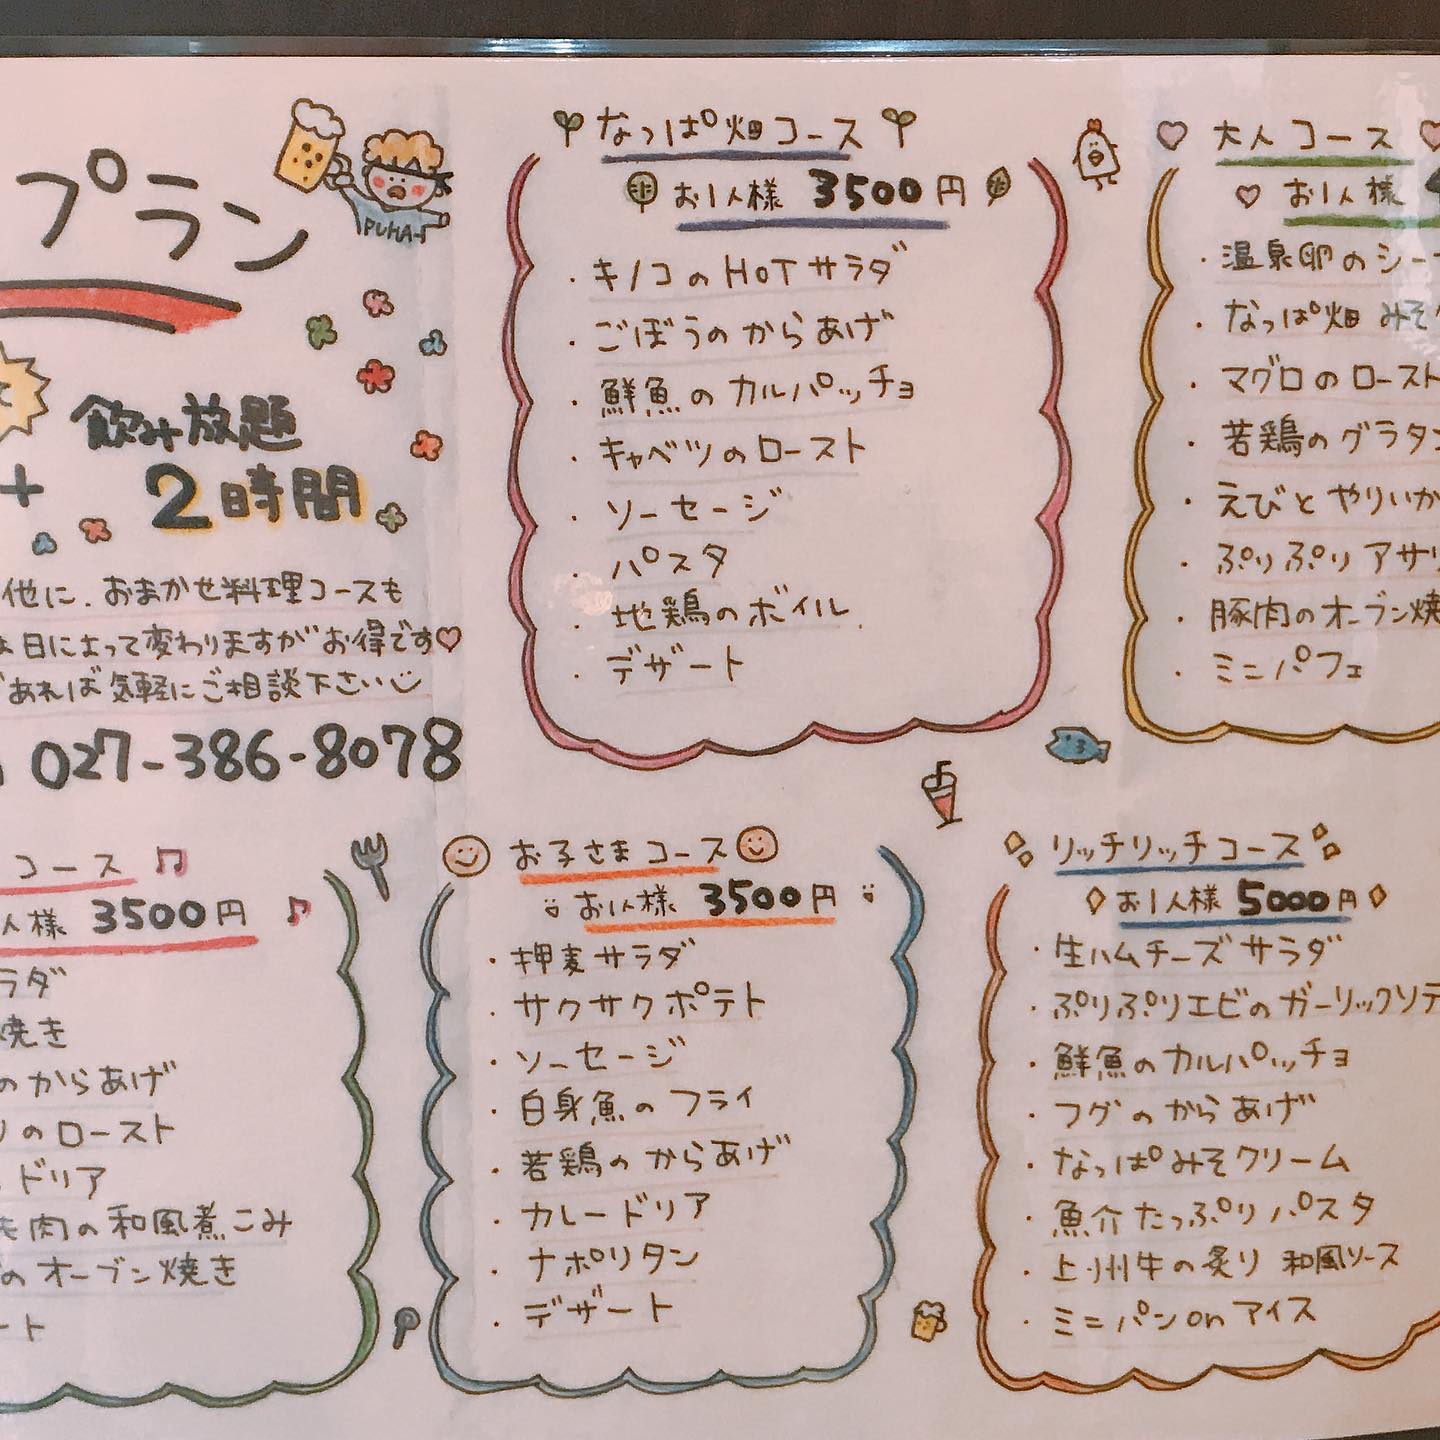 プラン
PUHA-
飲み放題
+ 2時間
他に、おまかせ料理コースも
日によって変わりますがお得です♡
あれば気軽にご相談下さい
027-386-8078
なっぱ畑コース
お1人様 3500円
・キノコのHOTサラダ
・ごぼうのからあげ
・鮮魚のカルパッチョ
・キャベツのロースト
・ソーセージ
・パスタ
・地鶏のボイル
・デザート
♡ 大人コース ♡
♡ お1人様
・温泉卵のシー
・なっぱ畑 みそ
・マグロのロースト
・若鶏のグラタン
・えびとやりいか
・ぷりぷりアサリ
・豚肉のオーブン焼
・ミニパフェ
コース
人様 3500円
ラダ
焼き
のからあげ
のロースト
ドリア
肉の和風煮こみ
のオーブン焼き
ート
お子さまコース
お1人様 3500円
・押麦サラダ
・サクサクポテト
・ソーセージ
・白身魚のフライ
・若鶏のからあげ
・カレードリア
・ナポリタン
・デザート
リッチリッチコース
お1人様 5000円
・生ハムチーズサラダ
・ぷりぷりエビのガーリックソテ
・鮮魚のカルパッチョ
・フグのからあげ
・なっぱみそクリーム
・魚介たっぷりパスタ
・上州牛の炙り 和風ソース
・ミニパンonアイス